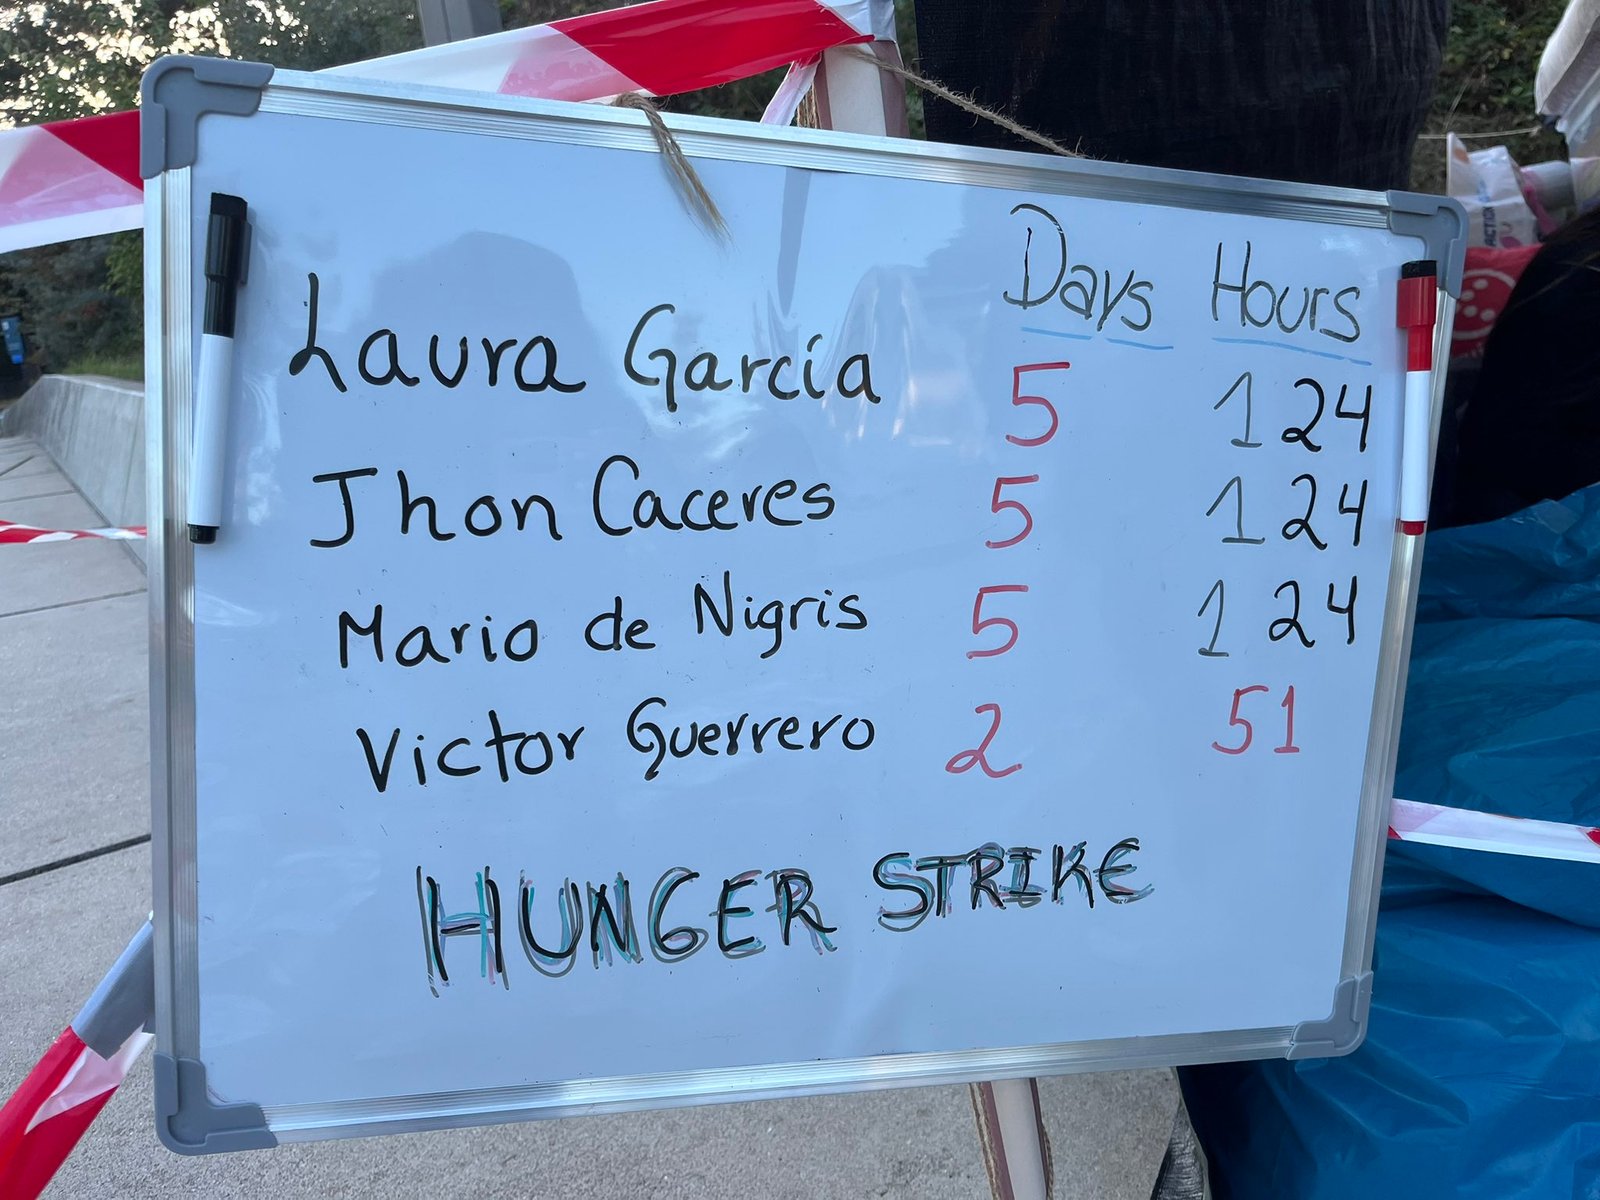 Days Hours
Laura García 5 124
Jhon Caceres 5 124
Mario de Nigris 5 124
Victor Guerrero 2 51
HUNGER STRIKE